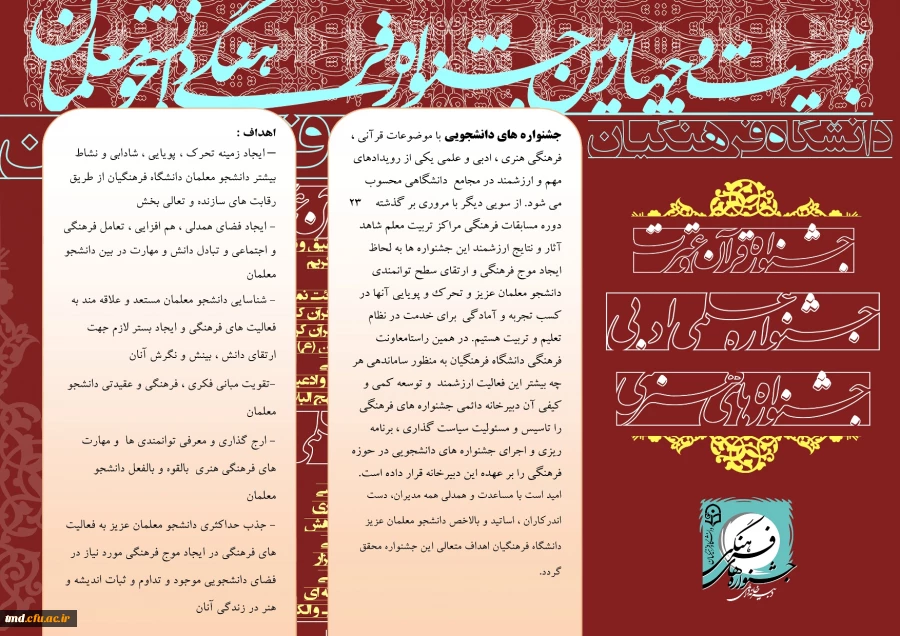 بیست و چهارمین جشنواره فرهنگی دانشجو معلمان
دانشگاه فرهنگیان
جشنواره قرآن و عترت
جشنواره علمی ادبی
جشنواره های هنری
جشنواره های دانشجویی با موضوعات قرآنی ،
فرهنگی هنری ، ادبی و علمی یکی از رویدادهای
مهم و ارزشمند در مجامع دانشگاهی محسوب
می شود. از سویی دیگر با مروری بر گذشته ۲۳
دوره مسابقات فرهنگی مراکز تربیت معلم شاهد
آثار و نتایج ارزشمند این جشنواره ها به لحاظ
ایجاد موج فرهنگی و ارتقای سطح توانمندی
دانشجو معلمان عزیز و تحرک و پویایی آنها در
کسب تجربه و آمادگی برای خدمت در نظام
تعلیم و تربیت هستیم. در همین راستامعاونت
فرهنگی دانشگاه فرهنگیان به منظور ساماندهی هر
چه بیشتر این فعالیت ارزشمند و توسعه کمی و
کیفی آن دبیرخانه دائمی جشنواره های فرهنگی
را تاسیس و مسئولیت سیاست گذاری ، برنامه
ریزی و اجرای جشنواره های دانشجویی در حوزه
فرهنگی را بر عهده این دبیرخانه قرار داده است.
امید است با مساعدت و همدلی همه مدیران، دست
اندرکاران ، اساتید و بالاخص دانشجو معلمان عزیز
دانشگاه فرهنگیان اهداف متعالی این جشنواره محقق
گردد.
اهداف :
– ایجاد زمینه تحرک ، پویایی ، شادابی و نشاط
بیشتر دانشجو معلمان دانشگاه فرهنگیان از طریق
رقابت های سازنده و تعالی بخش
- ایجاد فضای همدلی ، هم افزایی ، تعامل فرهنگی
و اجتماعی و تبادل دانش و مهارت در بین دانشجو
معلمان
- شناسایی دانشجو معلمان مستعد و علاقه مند به
فعالیت های فرهنگی و ایجاد بستر لازم جهت
ارتقای دانش ، بینش و نگرش آنان
-تقویت مبانی فکری ، فرهنگی و عقیدتی دانشجو
معلمان
- ارج گذاری و معرفی توانمندی ها و مهارت
های فرهنگی هنری بالقوه و بالفعل دانشجو
معلمان
- جذب حداکثری دانشجو معلمان عزیز به فعالیت
های فرهنگی در ایجاد موج فرهنگی مورد نیاز در
فضای دانشجویی موجود و تداوم و ثبات اندیشه و
هنر در زندگی آنان
جشنواره های فرهنگی
tmd.cfu.ac.ir